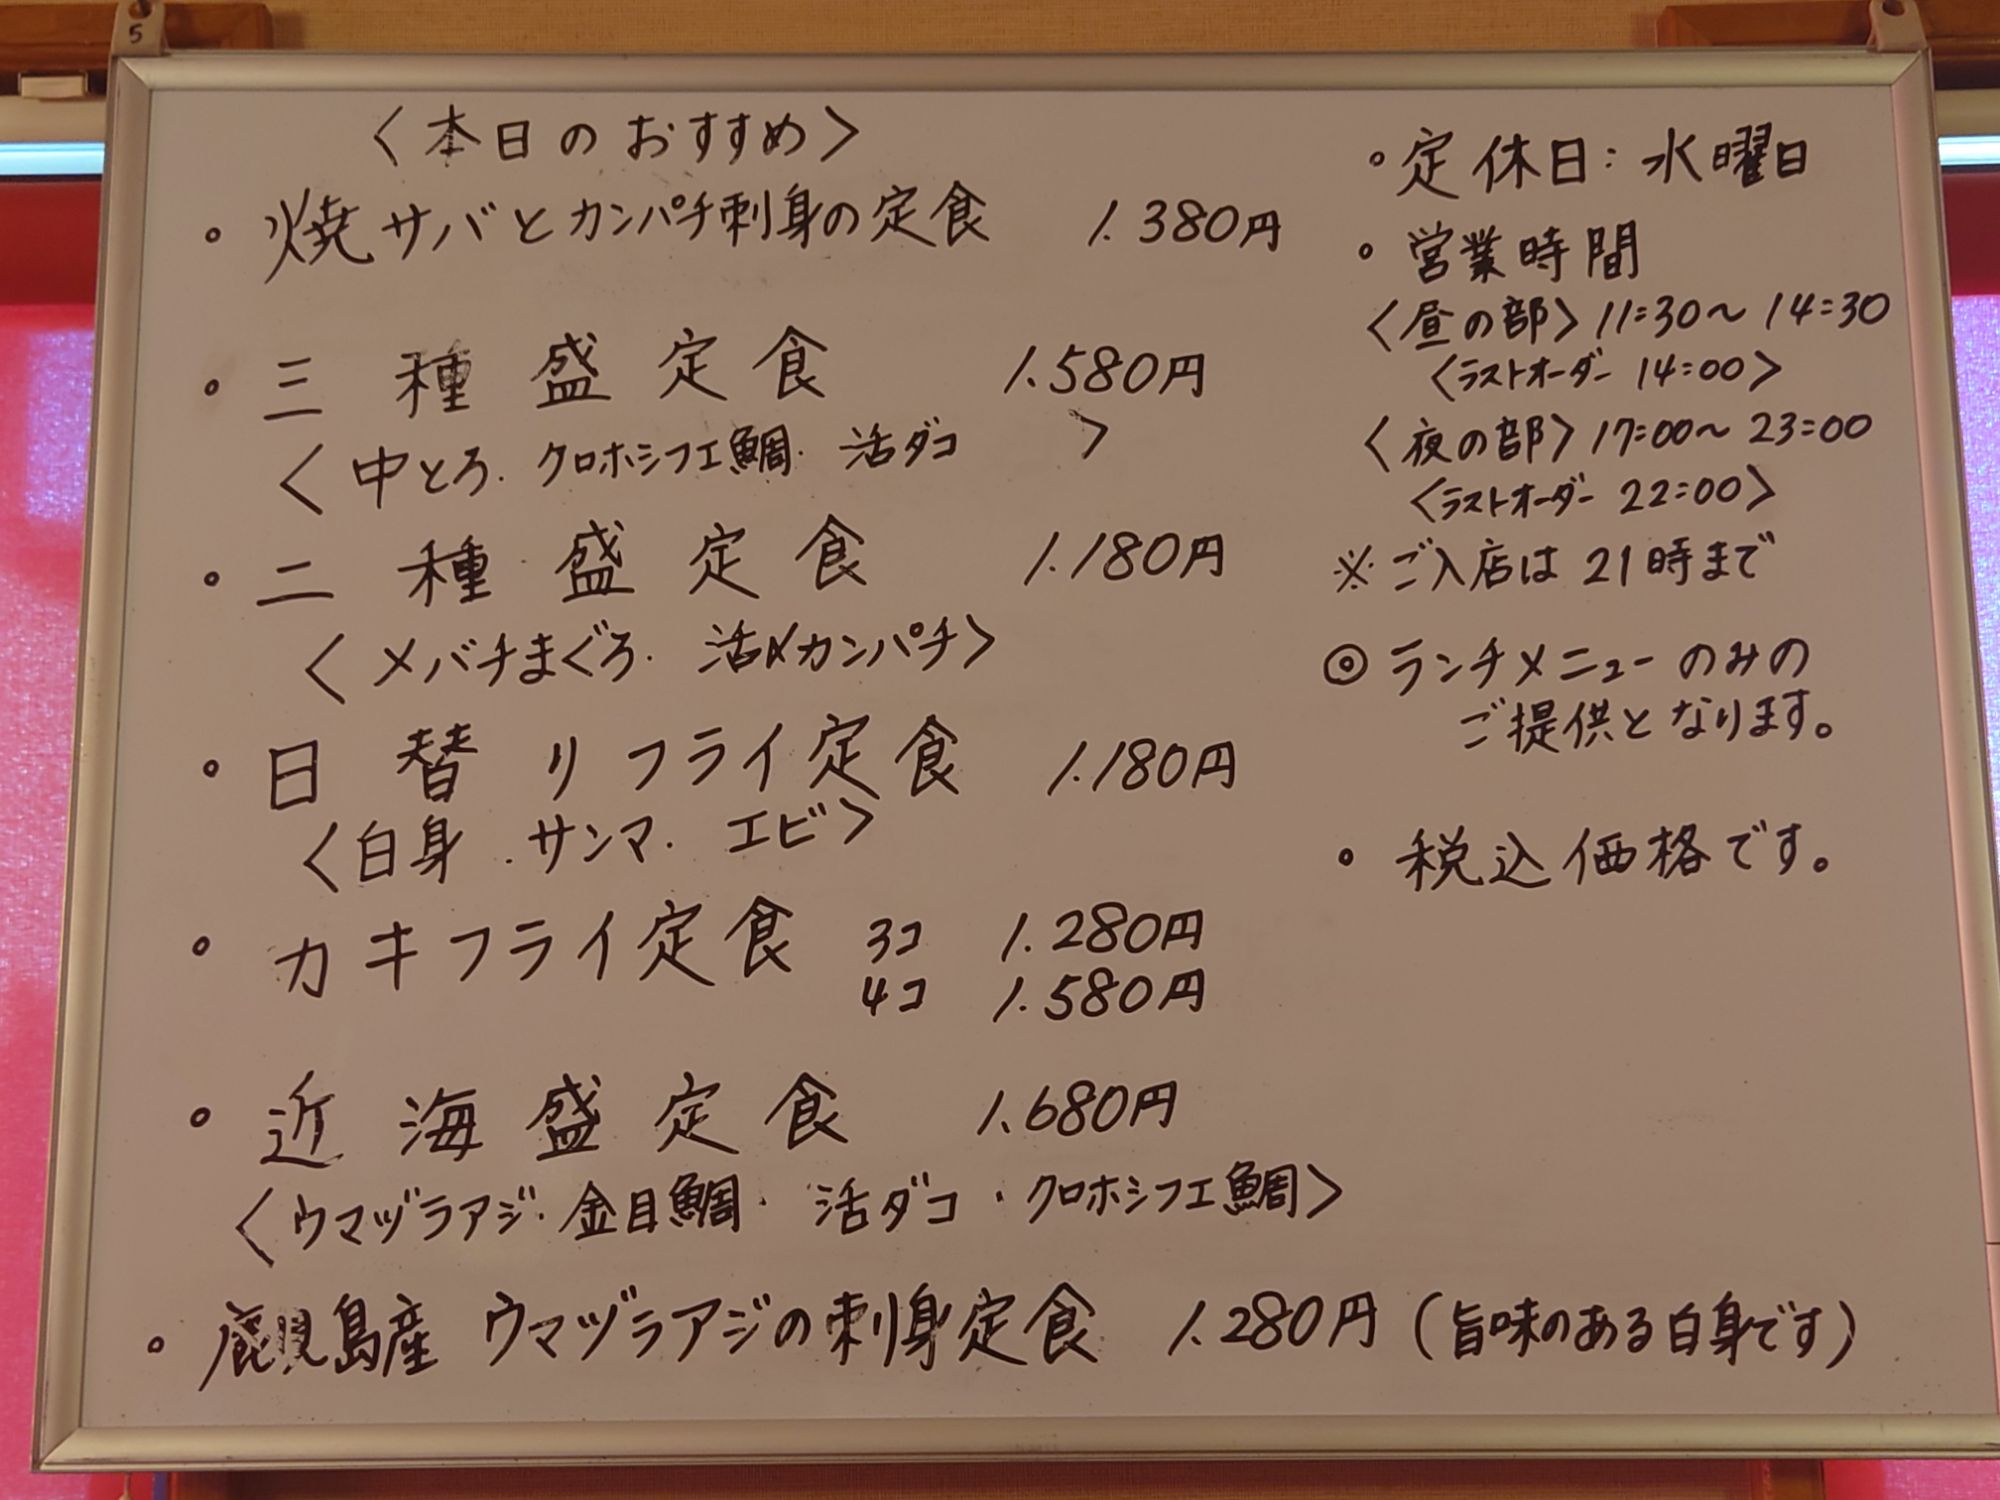 〈本日のおすすめ〉
。焼サバとカンパチ刺身の定食 1.380円
。三種盛定食 1.580円
〈中とろ.クロホシフエ鯛.活ダコ 〉
。二種盛定食 1.180円
〈メバチまぐろ.活〆カンパチ〉
。日替リフライ定食 1.180円
〈白身.サンマ.エビ〉
。カキフライ定食 3コ 1.280円
4コ 1.580円
。近海盛定食 1.680円
〈ウマヅラアジ.金目鯛.活ダコ.クロホシフエ鯛〉
。鹿児島産 ウマヅラアジの刺身定食 1.280円(旨味のある白身です)
。定休日:水曜日
。営業時間
〈昼の部〉11:30〜14:30
〈ラストオーダー 14:00〉
〈夜の部〉17:00〜23:00
〈ラストオーダー 22:00〉
※ご入店は21時まで
◎ランチメニューのみの
ご提供となります。
。税込価格です。
5